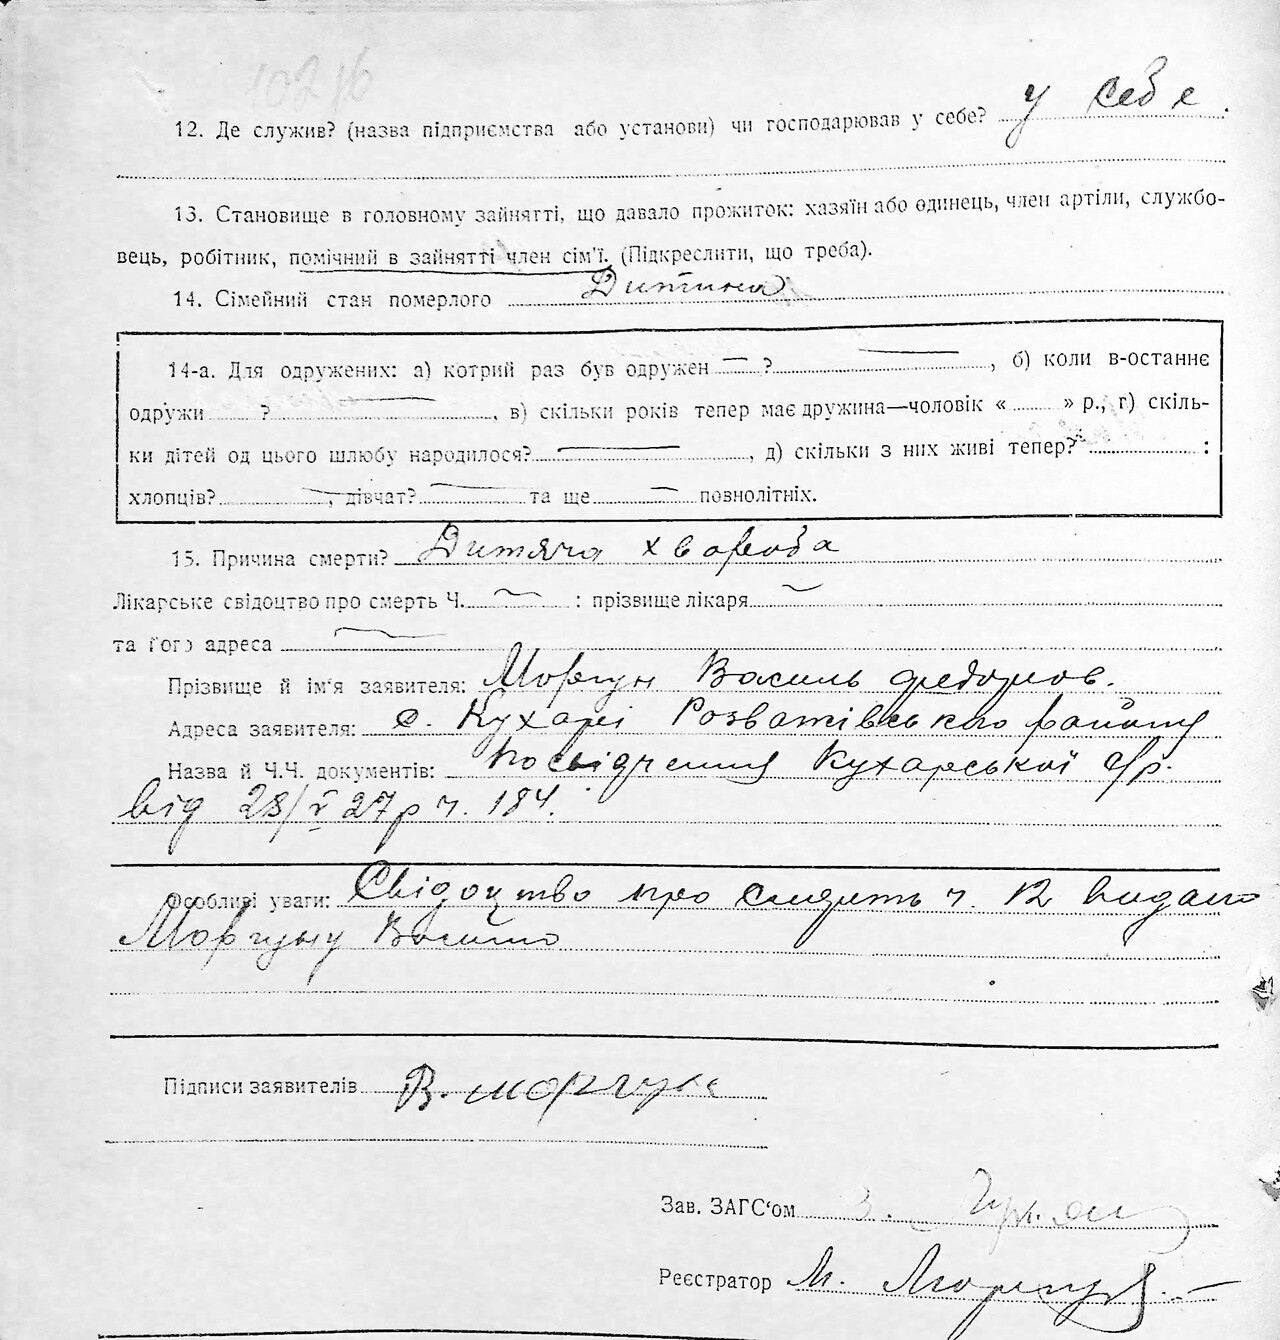 12. Де служив? (назва підприємства або установи) чи господарював у себе? у себе.
13. Становище в головному зайнятті, що давало прожиток: хазяїн або одинець, член артіли, службо-
вець, робітник, помічний в зайнятті член сім'ї. (Підкреслити, що треба).
14. Сімейний стан померлого Дитина
14-а. Для одружених: а) котрий раз був одружен — ? —, б) коли в-останнє
одружи ? —, в) скільки років тепер має дружина—чоловік « » р., г) скіль-
ки дітей од цього шлюбу народилося? —, д) скільки з них живі тепер? :
хлопців? —, дівчат? — та ще — повнолітніх.
15. Причина смерти? Дитяча хвороба
Лікарське свідоцтво про смерть Ч. — : прізвище лікаря —
та його адреса —
Прізвище й ім'я заявителя: Моргун Василь Федоров.
Адреса заявителя: с. Кухарі Розважівського району
Назва й Ч.Ч. документів: Посвідчення Кухарської с/р.
від 28/V 27р ч. 184.
Особливі уваги: Свідоцтво про смерть ч. 12 видано
Моргуну Василю
Підписи заявителів В. Моргун
Зав. ЗАГС'ом
Реєстратор М.